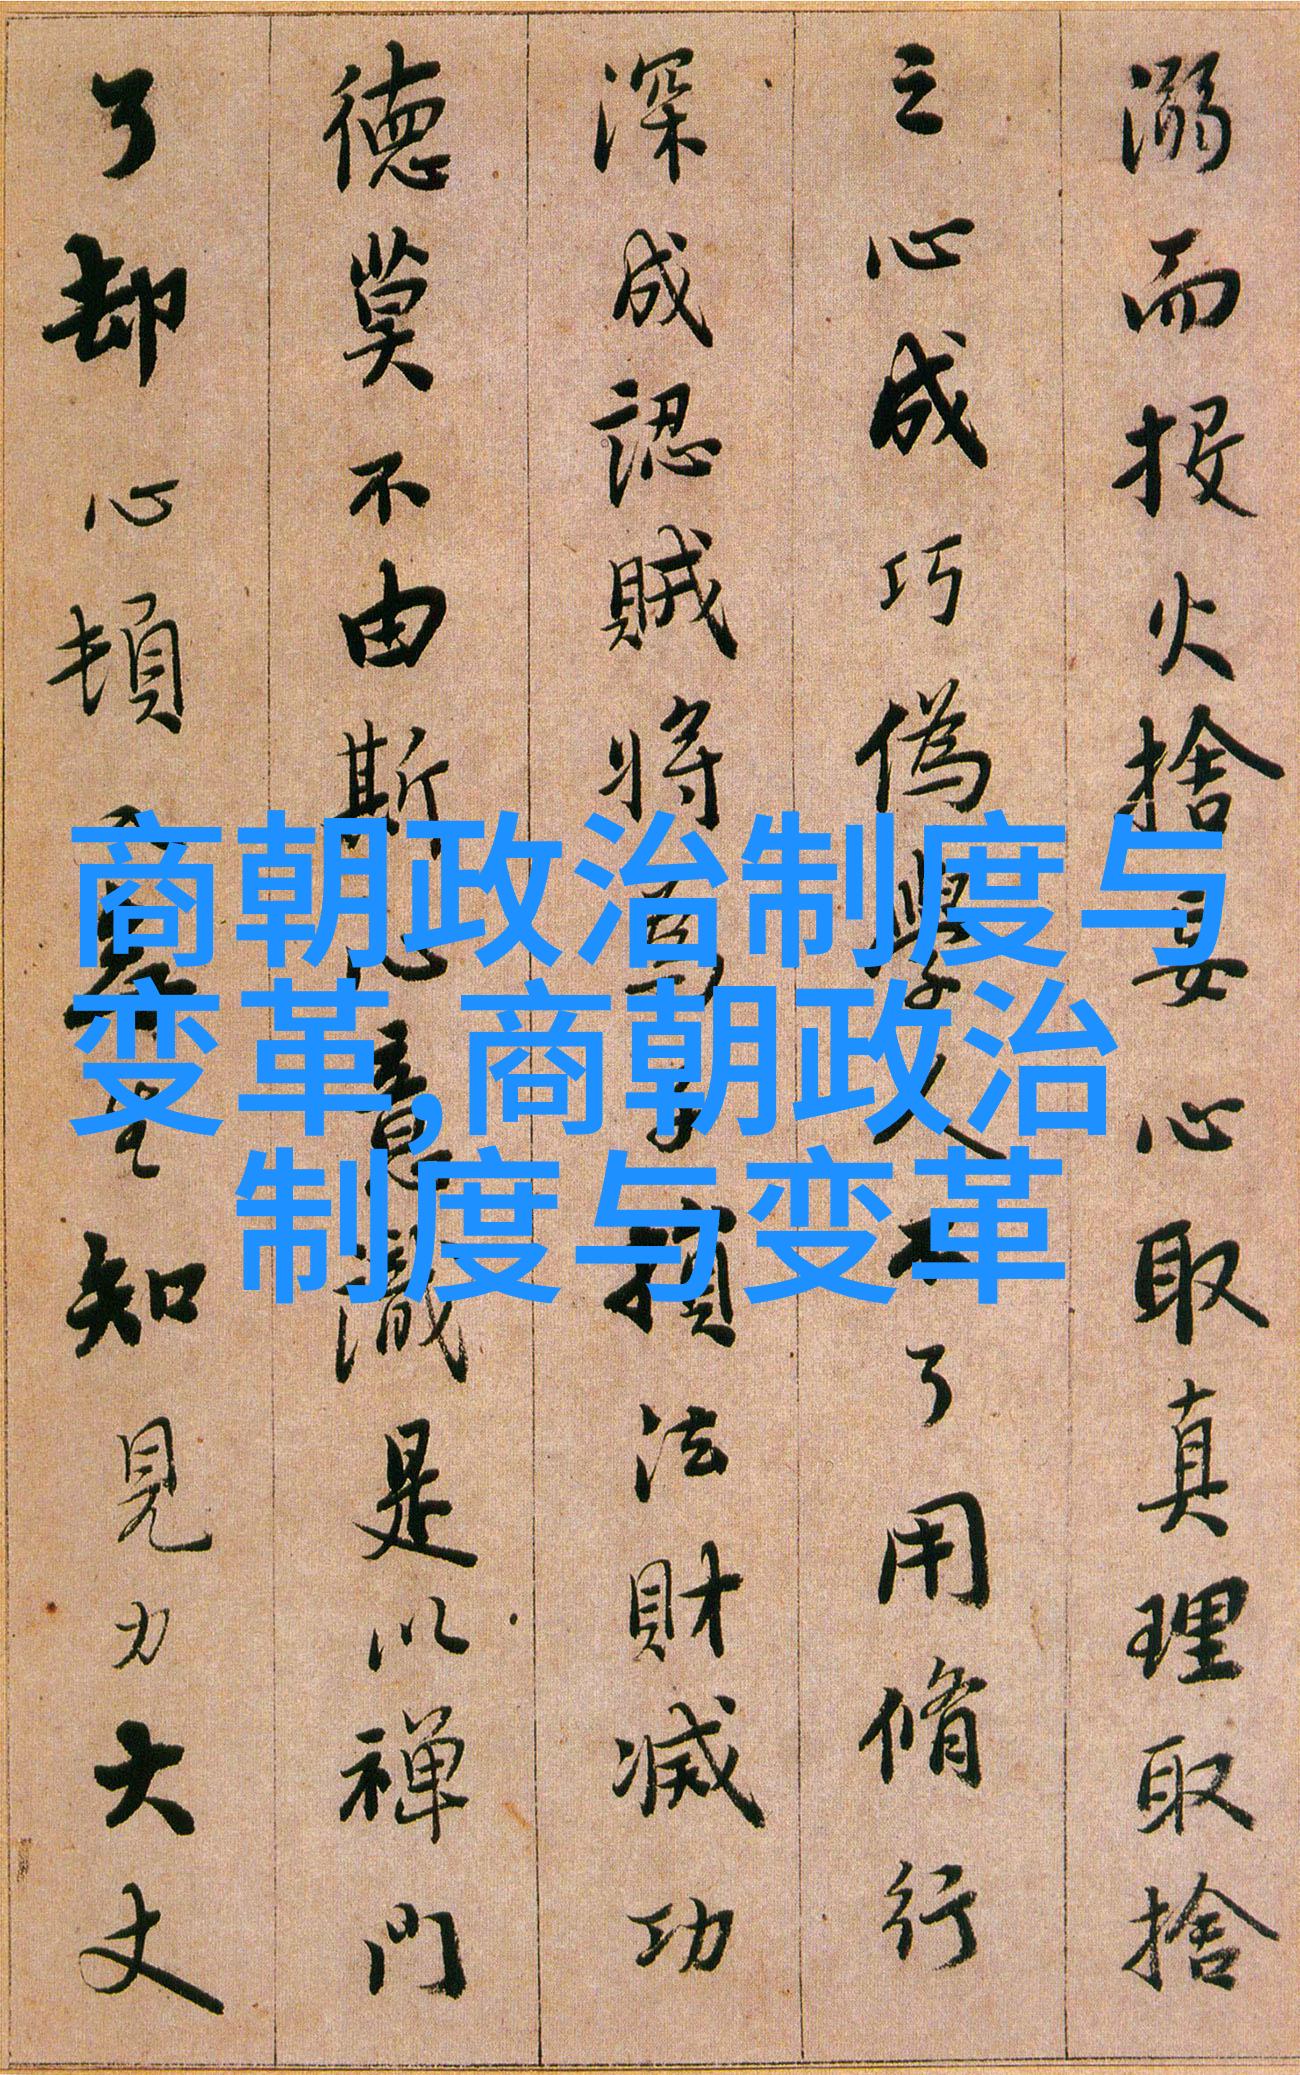 溺而投火捨妄心取真理取捨
之心成巧偽學人不了用脩行
深成認賊將為子損法財滅功
德莫不由斯心意識是以禪門
了却心頓入無生知見力大丈
商朝政治制度与
变革,商朝政治
制度与变革